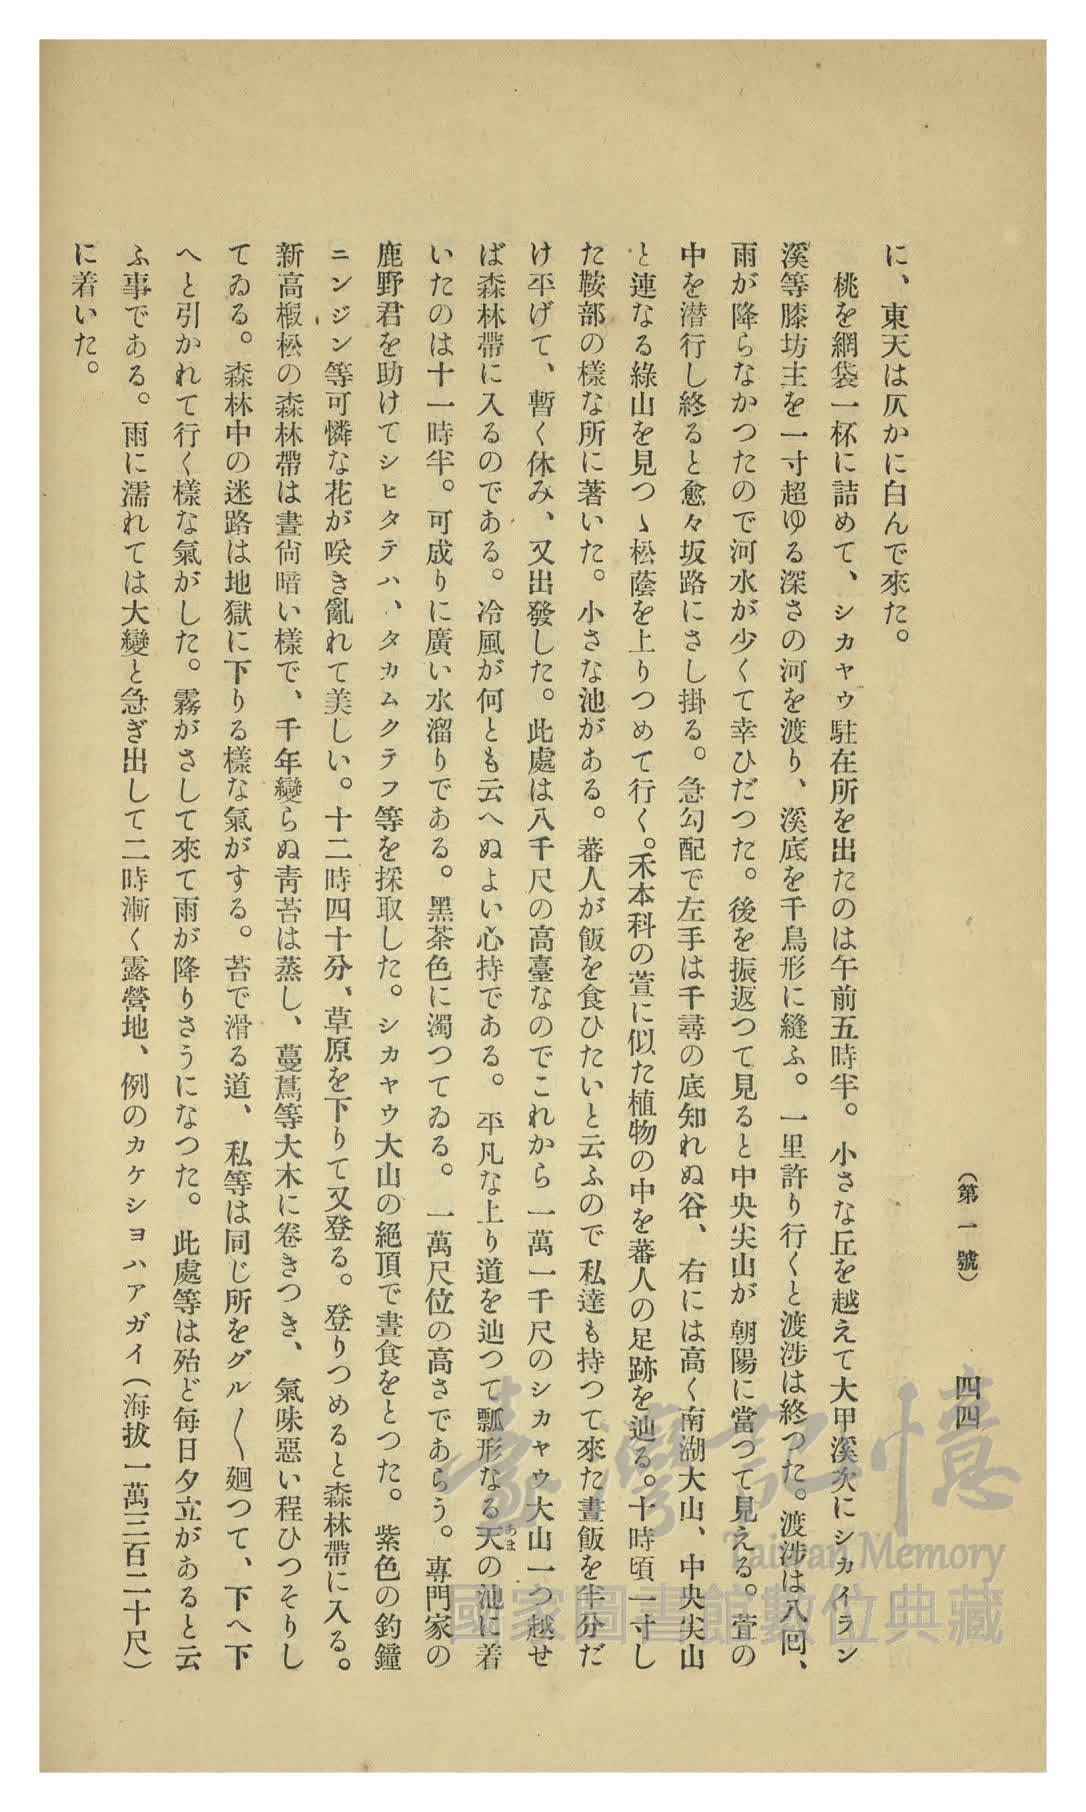 （第一號）
四四
に、東天は仄かに白んで來た。
桃を網袋一杯に詰めて、シカヤウ駐在所を出たのは午前五時半。小さな丘を越えて大甲溪次にシカイラン
溪等膝坊主を一寸超ゆる深さの河を渡り、溪底を千鳥形に縫ふ。一里許り行くと渡渉は終つた。渡渉は八回、
雨が降らなかつたので河水が少くて幸ひだつた。後を振返つて見ると中央尖山が朝陽に當つて見える。萱の
中を潜行し終ると愈々坂路にさし掛る。急勾配で左手は千尋の底知れぬ谷、右には高く南湖大山、中央尖山
と連なる綠山を見つゝ松蔭を上りつめて行く。禾本科の萱に似た植物の中を蕃人の足跡を辿る。十時頃一寸し
た鞍部の樣な所に著いた。小さな池がある。蕃人が飯を食ひたいと云ふので私達も持つて來た晝飯を半分だ
け平げて、暫く休み、又出發した。此處は八千尺の高臺なのでこれから一萬一千尺のシカヤウ大山一つ越せ
ば森林帶に入るのである。冷風が何とも云へぬよい心持である。平凡な上り道を辿つて瓢形なる天の池に着
あま
いたのは十一時半。可成りに廣い水溜りである。黑茶色に濁つてゐる。一萬尺位の高さであらう。專門家の
鹿野君を助けてシヒタテハ、タカムクテフ等を採取した。シカヤウ大山の絕頂で晝食をとつた。紫色の釣鐘
ニンジン等可憐な花が咲き亂れて美しい。十二時四十分、草原を下りて又登る。登りつめると森林帶に入る。
新高椴松の森林帶は晝尙暗い樣で、千年變らぬ靑苔は蒸し、蔓蔦等大木に卷きつき、氣味惡い程ひつそりし
てゐる。森林中の迷路は地獄に下りる樣な氣がする。苔で滑る道、私等は同じ所をグル〱廻つて、下へ下
へと引かれて行く樣な氣がした。霧がさして來て雨が降りさうになつた。此處等は殆ど每日夕立があると云
ふ事である。雨に濡れては大變と急ぎ出して二時漸く露營地、例のカケショハアガイ（海拔一萬三百二十尺）
に着いた。
臺灣記憶
Taiwan Memory
國家圖書館數位典藏